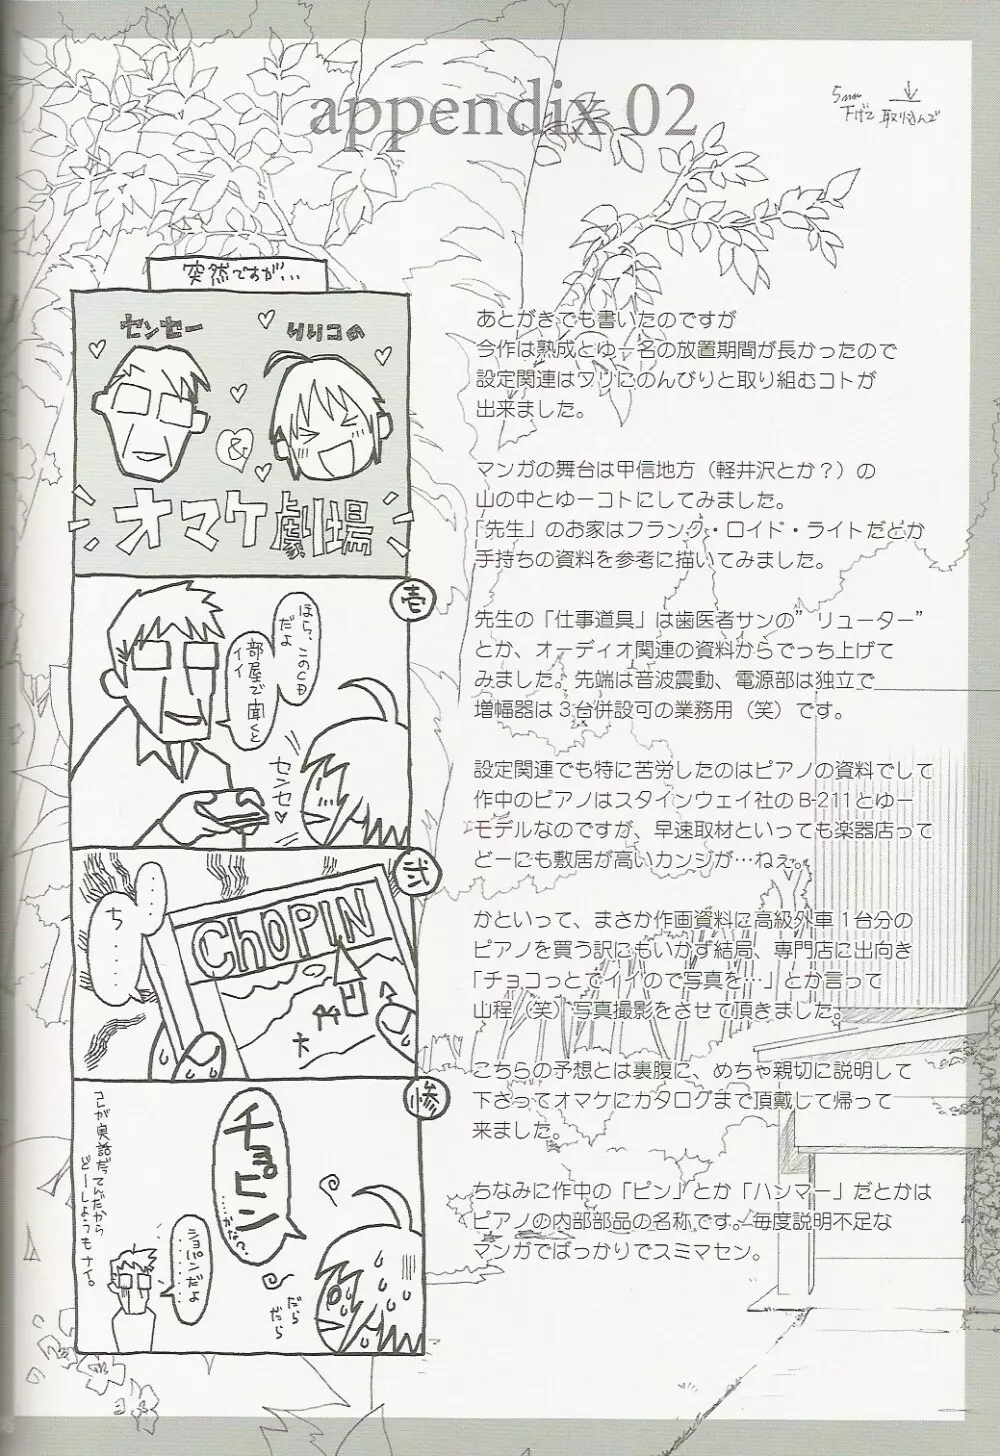 appendix 02
5mm
下げて 取り込んで
突然ですが...
センセー
&
リリコの
オマケ劇場
壱
ほら、このCD
だよ
部屋で聞くと
イイ
センセ♡
弐
・・・
ち・・・・
CHOPIN
惨
チョピン
・・・かな？
ショパンだよ
・・・・・
だら
だら
コレが実話だってんだから
どーしようもナイ。
あとがきでも書いたのですが
今作は熟成とゆー名の放置期間が長かったので
設定関連はワリにのんびりと取り組むコトが
出来ました。
マンガの舞台は甲信地方（軽井沢とか？）の
山の中とゆーコトにしてみました。
「先生」のお家はフランク・ロイド・ライトだとか
手持ちの資料を参考に描いてみました。
先生の「仕事道具」は歯医者サンの”リューター”
とか、オーディオ関連の資料からでっち上げて
みました。先端は音波震動、電源部は独立で
増幅器は３台併設可の業務用（笑）です。
設定関連でも特に苦労したのはピアノの資料でして
作中のピアノはスタインウェイ社のB-211とゆー
モデルなのですが、早速取材といっても楽器店って
どーにも敷居が高いカンジが…ねぇ。
かといって、まさか作画資料に高級外車１台分の
ピアノを買う訳にもいかず結局、専門店に出向き
「チョコっとでイイので写真を…」とか言って
山程（笑）写真撮影をさせて頂きました。
こちらの予想とは裏腹に、めちゃ親切に説明して
下さってオマケにカタログまで頂戴して帰って
来ました。
ちなみに作中の「ピン」とか「ハンマー」だとかは
ピアノの内部部品の名称です。毎度説明不足な
マンガでばっかりでスミマセン。